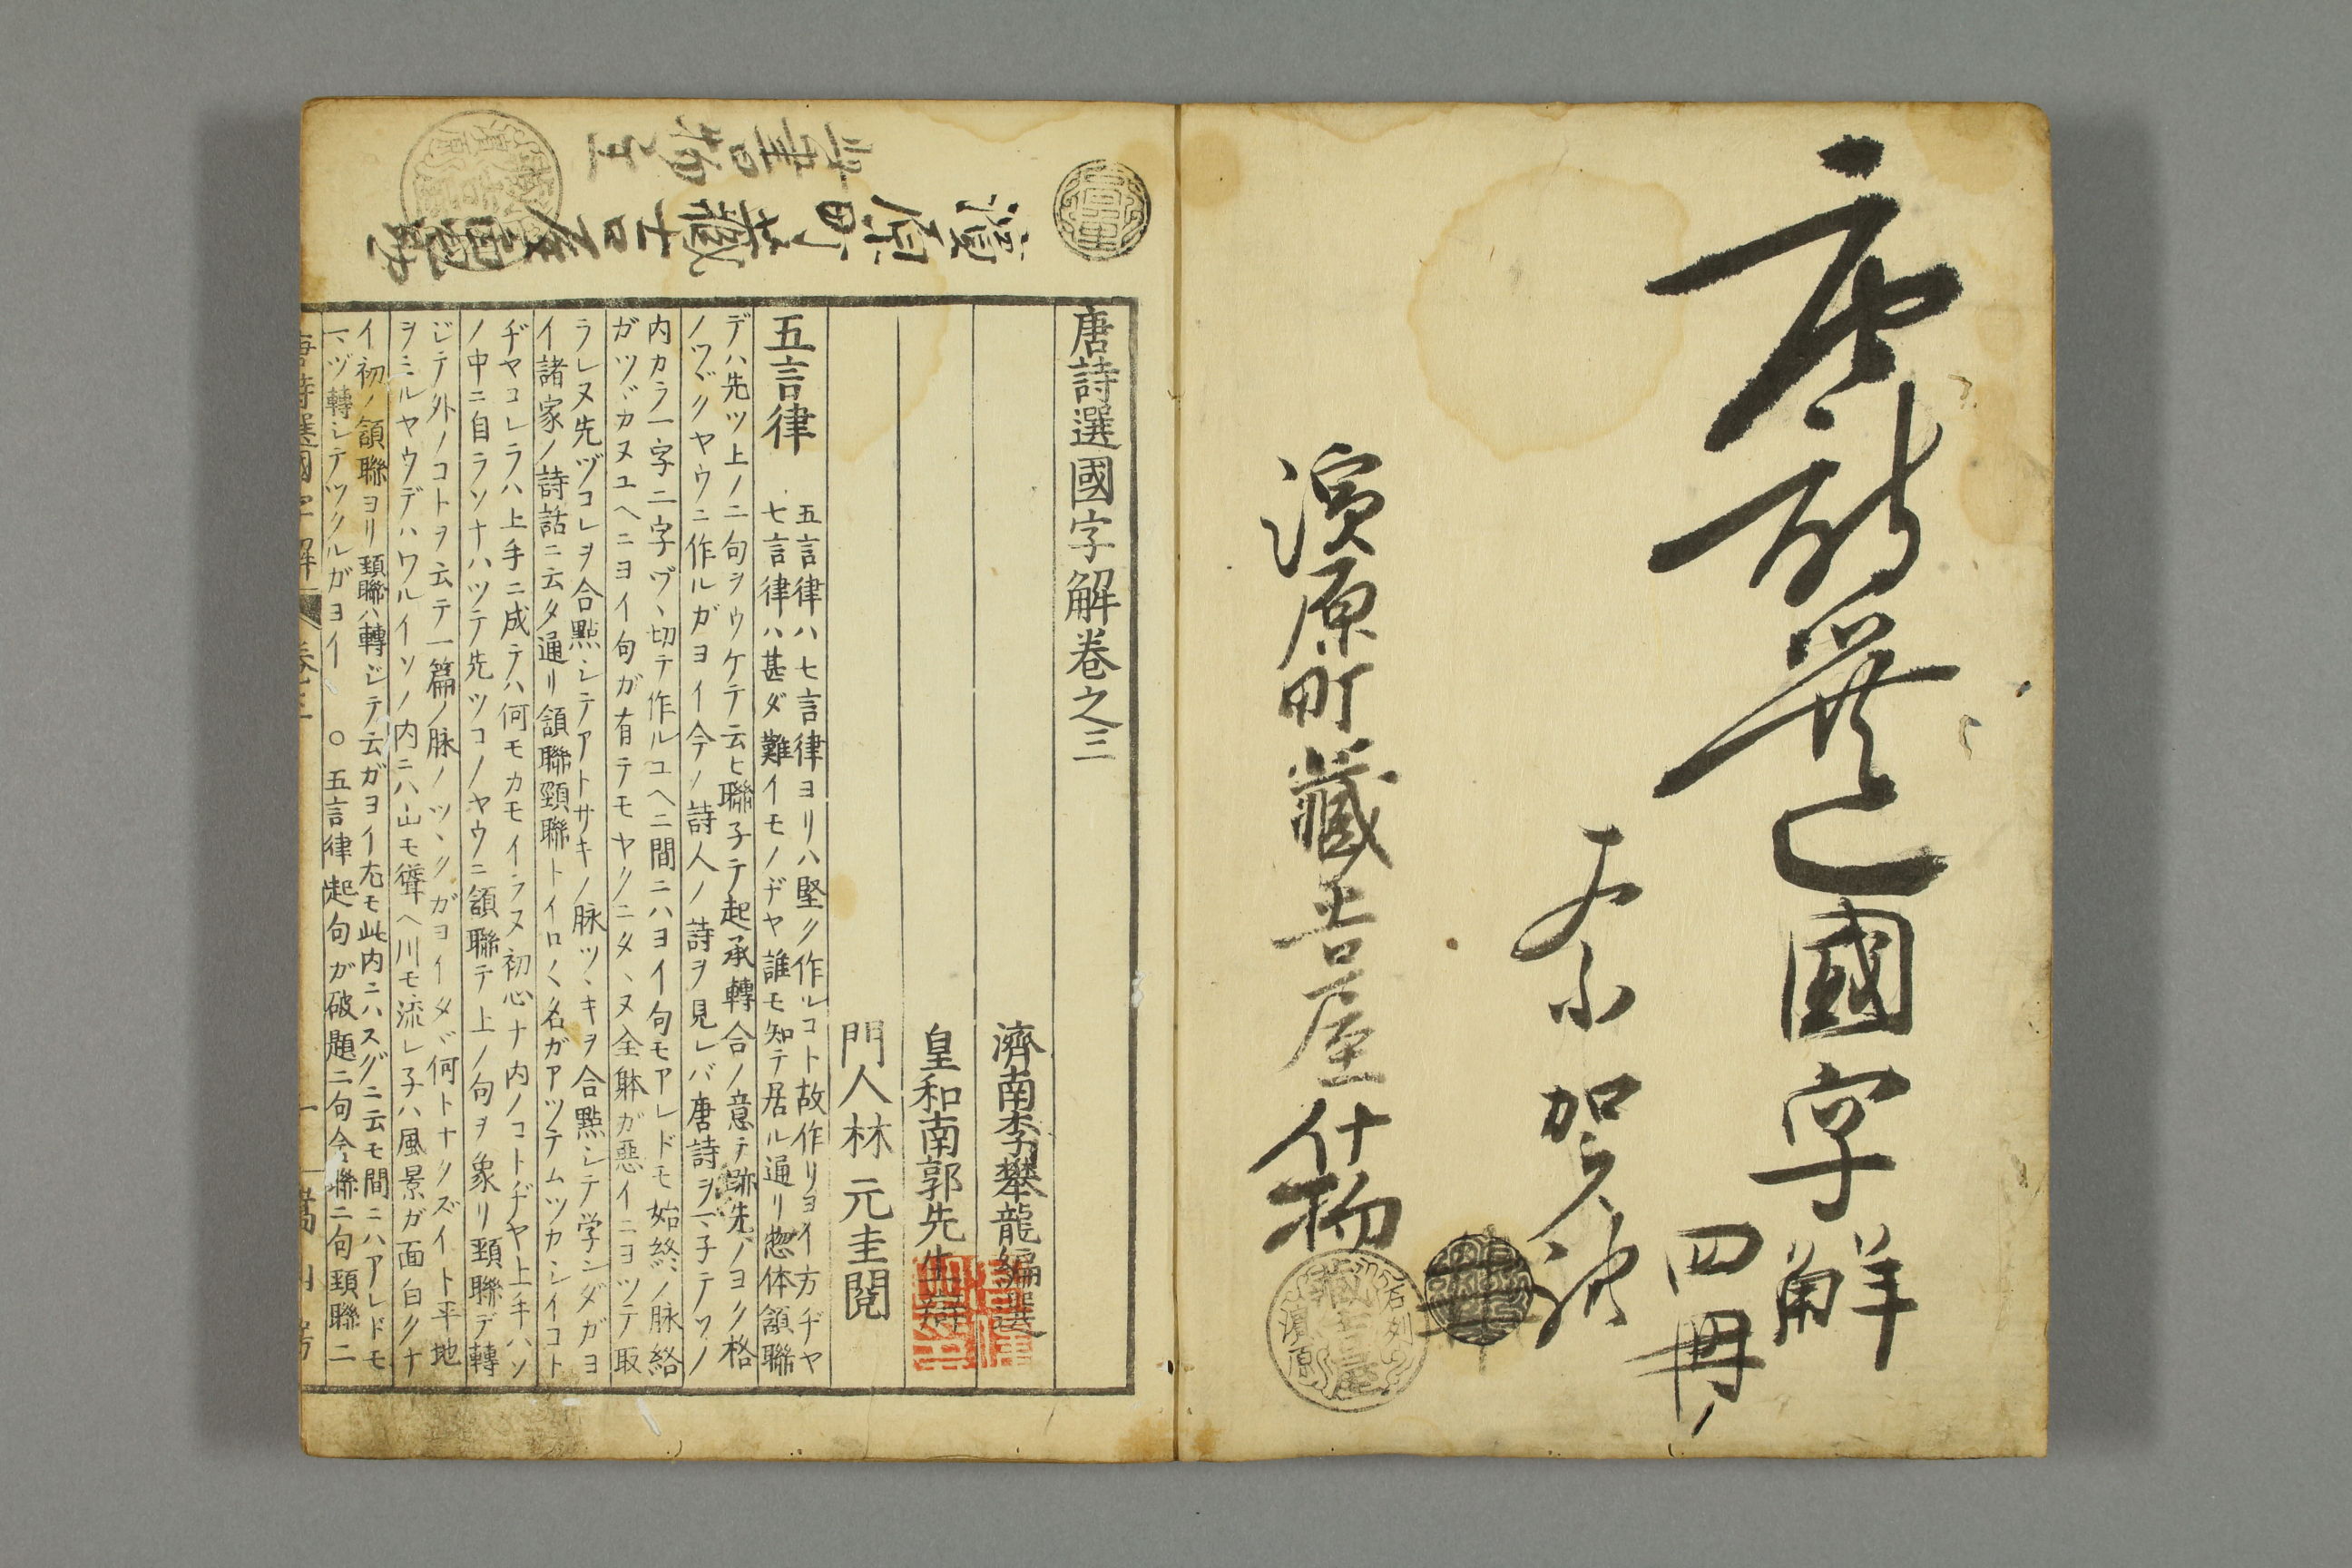 唐詩選國字解
四冊
濱原町藏吉屋什物
濱原町藏吉屋
唐詩選國字解卷之三
濟南李攀龍編選
皇和南郭先生辯
門人林元圭閲
五言律
五言律ハ七言律ヨリハ堅ク作ルコト故作リヨイ方ヂヤ
七言律ハ甚ダ難イモノヂヤ誰モ知テ居ル通リ惣体頷聯
デハ先ツ上ノ二句ヲウケテ云ヒ聯子テ起承轉合ノ意テ跡先ノヨク格
ノワヾクヤウニ作ルガヨイ今ノ詩人ノ詩ヲ見レバ唐詩ヲ子テツノ
内カラ一字二字ヅヽ切テ作ルユヘニ間ニハヨイ句モアレドモ始終ノ脉絡
ガツヾカヌユヘニヨイ句ガ有テモヤクニタヽヌ全躰ガ悪イニヨツテ取
ラレヌ先ヅコレヲ合點シテアトサキノ脉ツヾキヲ合點シテ学ンダガヨ
イ諸家ノ詩話ニ云タ通リ頷聯頸聯トイロ〱名ガアツテムツカシイコト
ヂヤコレラハ上手ニ成テハ何モカモイラヌ初心ナ内ノコトヂヤ上手ハソ
ノ中ニ自ラソナハツテ先ツコノヤウニ頷聯テ上ノ句ヲ象リ頸聯デ轉
ジテ外ノコトヲ云テ一篇ノ脉ノツヾクガヨイタヾ何トナクズイト平地
ヲミルヤウデハワルイソノ内ニハ山モ聳ヘ川モ流レ子ハ風景ガ面白クナ
イ初ノ頷聯ヨリ頸聯ハ轉ジテ云ガヨイ尤モ此内ニハスグニ云モ間ニハアレドモ
マヅ轉シテツクルガヨイ ○五言律起句ガ破題二句頷聯二句頸聯二